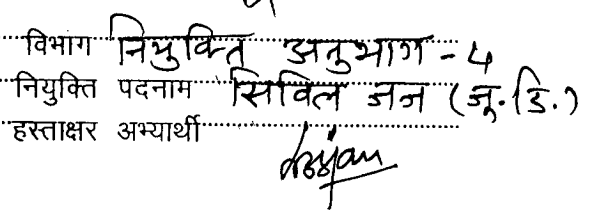 विभाग नियुक्ति अनुभाग - 4
नियुक्ति पदनाम सिविल जज (जू. डि.)
हस्ताक्षर अभ्यार्थी